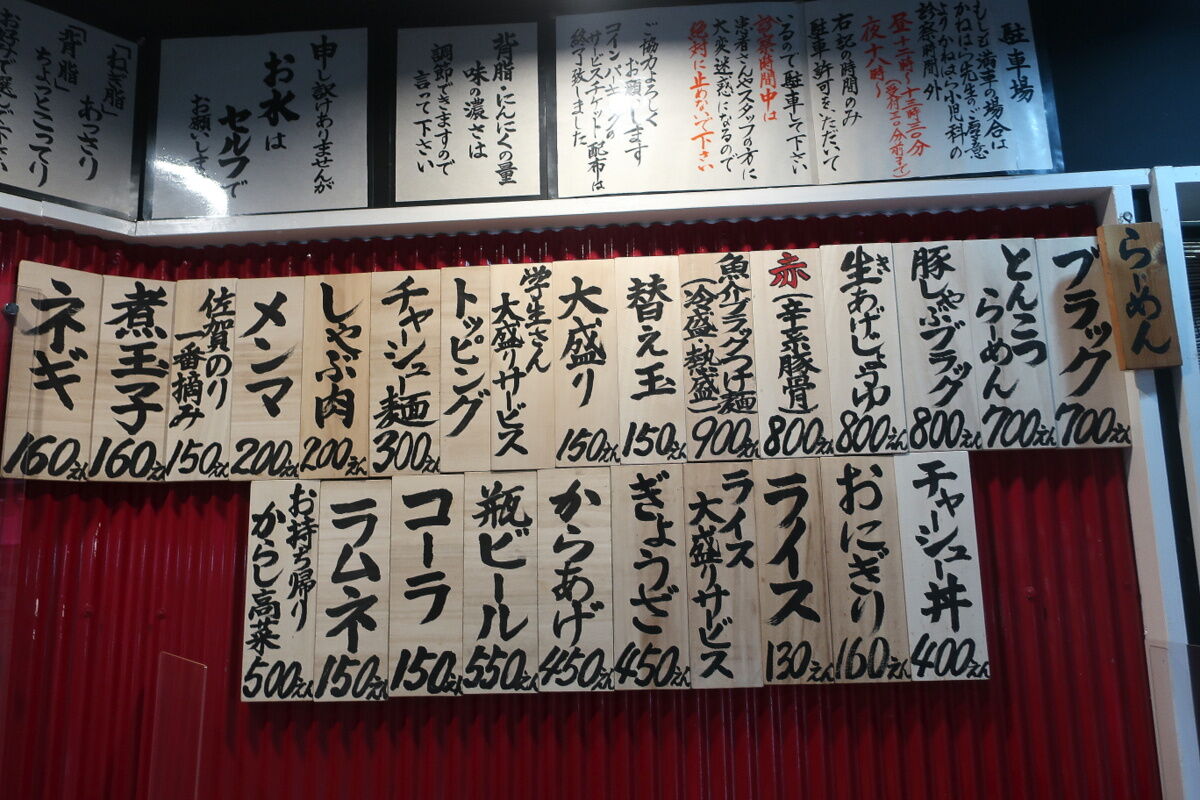 駐車場
もしも満車の場合は
かねはら先生のご厚意
よりかねはら小児科の
診察時間外
昼十二時〜十三時三〇分
夜十八時〜(受付三〇分前まで)
右記の時間のみ
駐車許可をいただいて
いるので駐車して下さい
診察時間中は
患者さんやスタッフの方に
大変迷惑になるので
絶対に止めないで下さい
ご協力よろしく
お願いします
コインパーキングの
サービスチケット配布は
終了致しました
背脂・にんにくの量
味の濃さは
調節できますので
言って下さい
申し訳ありませんが
お水は
セルフで
お願いします
「ねぎ脂」
あっさり
「背脂」
ちょっとこってり
らーめん
ブラック
700えん
とんこつ
らーめん
700えん
豚しゃぶブラック
800えん
生あげじょうゆ
き
800えん
赤(辛系豚骨)
800えん
魚介ブラックつけ麺
(冷盛・熱盛)
900えん
替え玉
150えん
大盛り
150えん
学生さん
大盛りサービス
トッピング
チャーシュー麺
300えん
しゃぶ肉
200えん
メンマ
200えん
佐賀のり
一番摘み
150えん
煮玉子
160えん
ネギ
160えん
チャーシュー丼
400えん
おにぎり
160えん
ライス
130えん
ライス
大盛りサービス
ぎょうざ
450えん
からあげ
450えん
瓶ビール
550えん
コーラ
150えん
ラムネ
150えん
お持ち帰り
からし高菜
500えん